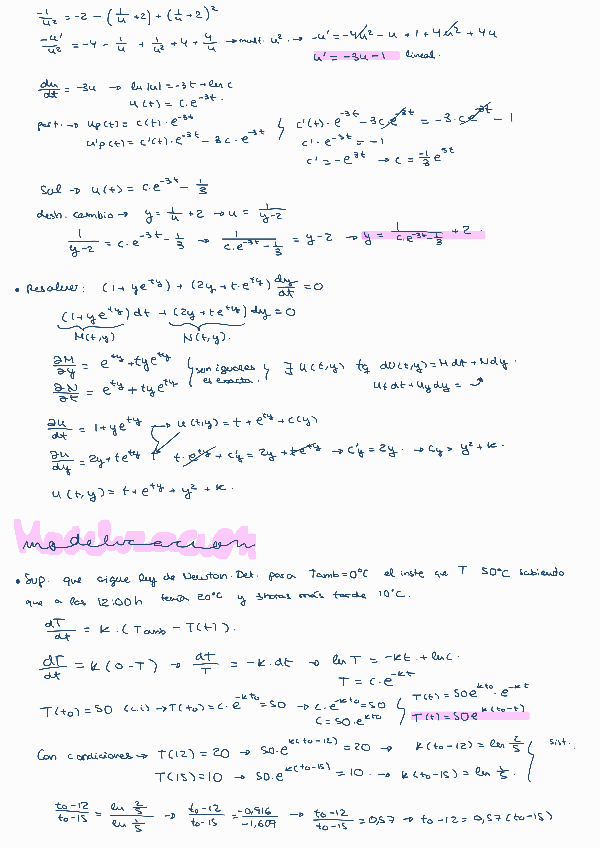 -1/u² = -2 - (1/u + 2) + (1/u + 2)²
-u'/u² = -4 - 1/u + 1/u² + 4 + 4/u → mult. u² → -u' = -4u² - u + 1 + 4u² + 4u
u' = -3u - 1 lineal.
du/dt = -3u → ln|u| = -3t + ln c
u(t) = c·e^-3t.
part. → up(t) = c(t)·e^-3t
u'p(t) = c'(t)·e^-3t - 3c·e^-3t
c'(t)·e^-3t - 3c e^-3t = -3·c e^-3t - 1
c'·e^-3t = -1
c' = -e^3t → c = -1/3 e^3t
Sol → u(t) = c·e^-3t - 1/3
desh. cambio → y = 1/u + 2 → u = 1/(y-2)
1/(y-2) = c·e^-3t - 1/3 → 1/(c·e^-3t - 1/3) = y - 2 → y = 1/(c·e^-3t - 1/3) + 2.
• Resolver: (1 + ye^ty) + (2y + t·e^ty) dy/dt = 0
(1 + ye^ty) dt + (2y + te^ty) dy = 0
M(t,y) N(t,y).
∂M/∂y = e^ty + tye^ty
∂N/∂t = e^ty + tye^ty
son iguales
es exacta.
∃ U(t,y) tq dU(t,y) = Mdt + Ndy.
Ut dt + Uy dy =
∂u/dt = 1 + ye^ty → u(t,y) = t + e^ty + c(y)
∂u/dy = 2y + te^ty t·e^ty + c'y = 2y + te^ty → c'y = 2y. → cy = y² + k.
u(t,y) = t + e^ty + y² + k.
modelización
• Sup. que sigue ley de Newton. Det. para Tamb = 0°C el inste que T 50°C sabiendo
que a las 12:00h tenía 20°C y 3horas más tarde 10°C.
dT/dt = k·(Tamb - T(t)).
dT/dt = k(0 - T) → dT/T = -k·dt → ln T = -kt + ln c.
T = c·e^-kt
T(t0) = 50 (c.i) → T(t0) = c·e^-kt0 = 50 → c·e^-kt0 = 50
c = 50·e^kt0
T(t) = 50e^kt0·e^-kt
T(t) = 50e^k(t0-t)
Con condiciones → T(12) = 20 → 50·e^k(t0-12) = 20 → k(t0-12) = ln 2/5
T(15) = 10 → 50·e^k(t0-15) = 10. → k(t0-15) = ln 1/5.
sist.
(t0-12)/(t0-15) = (ln 2/5)/(ln 1/5) → (t0-12)/(t0-15) = -0,916/-1,609 → (t0-12)/(t0-15) = 0,57 → t0-12 = 0,57(t0-15)